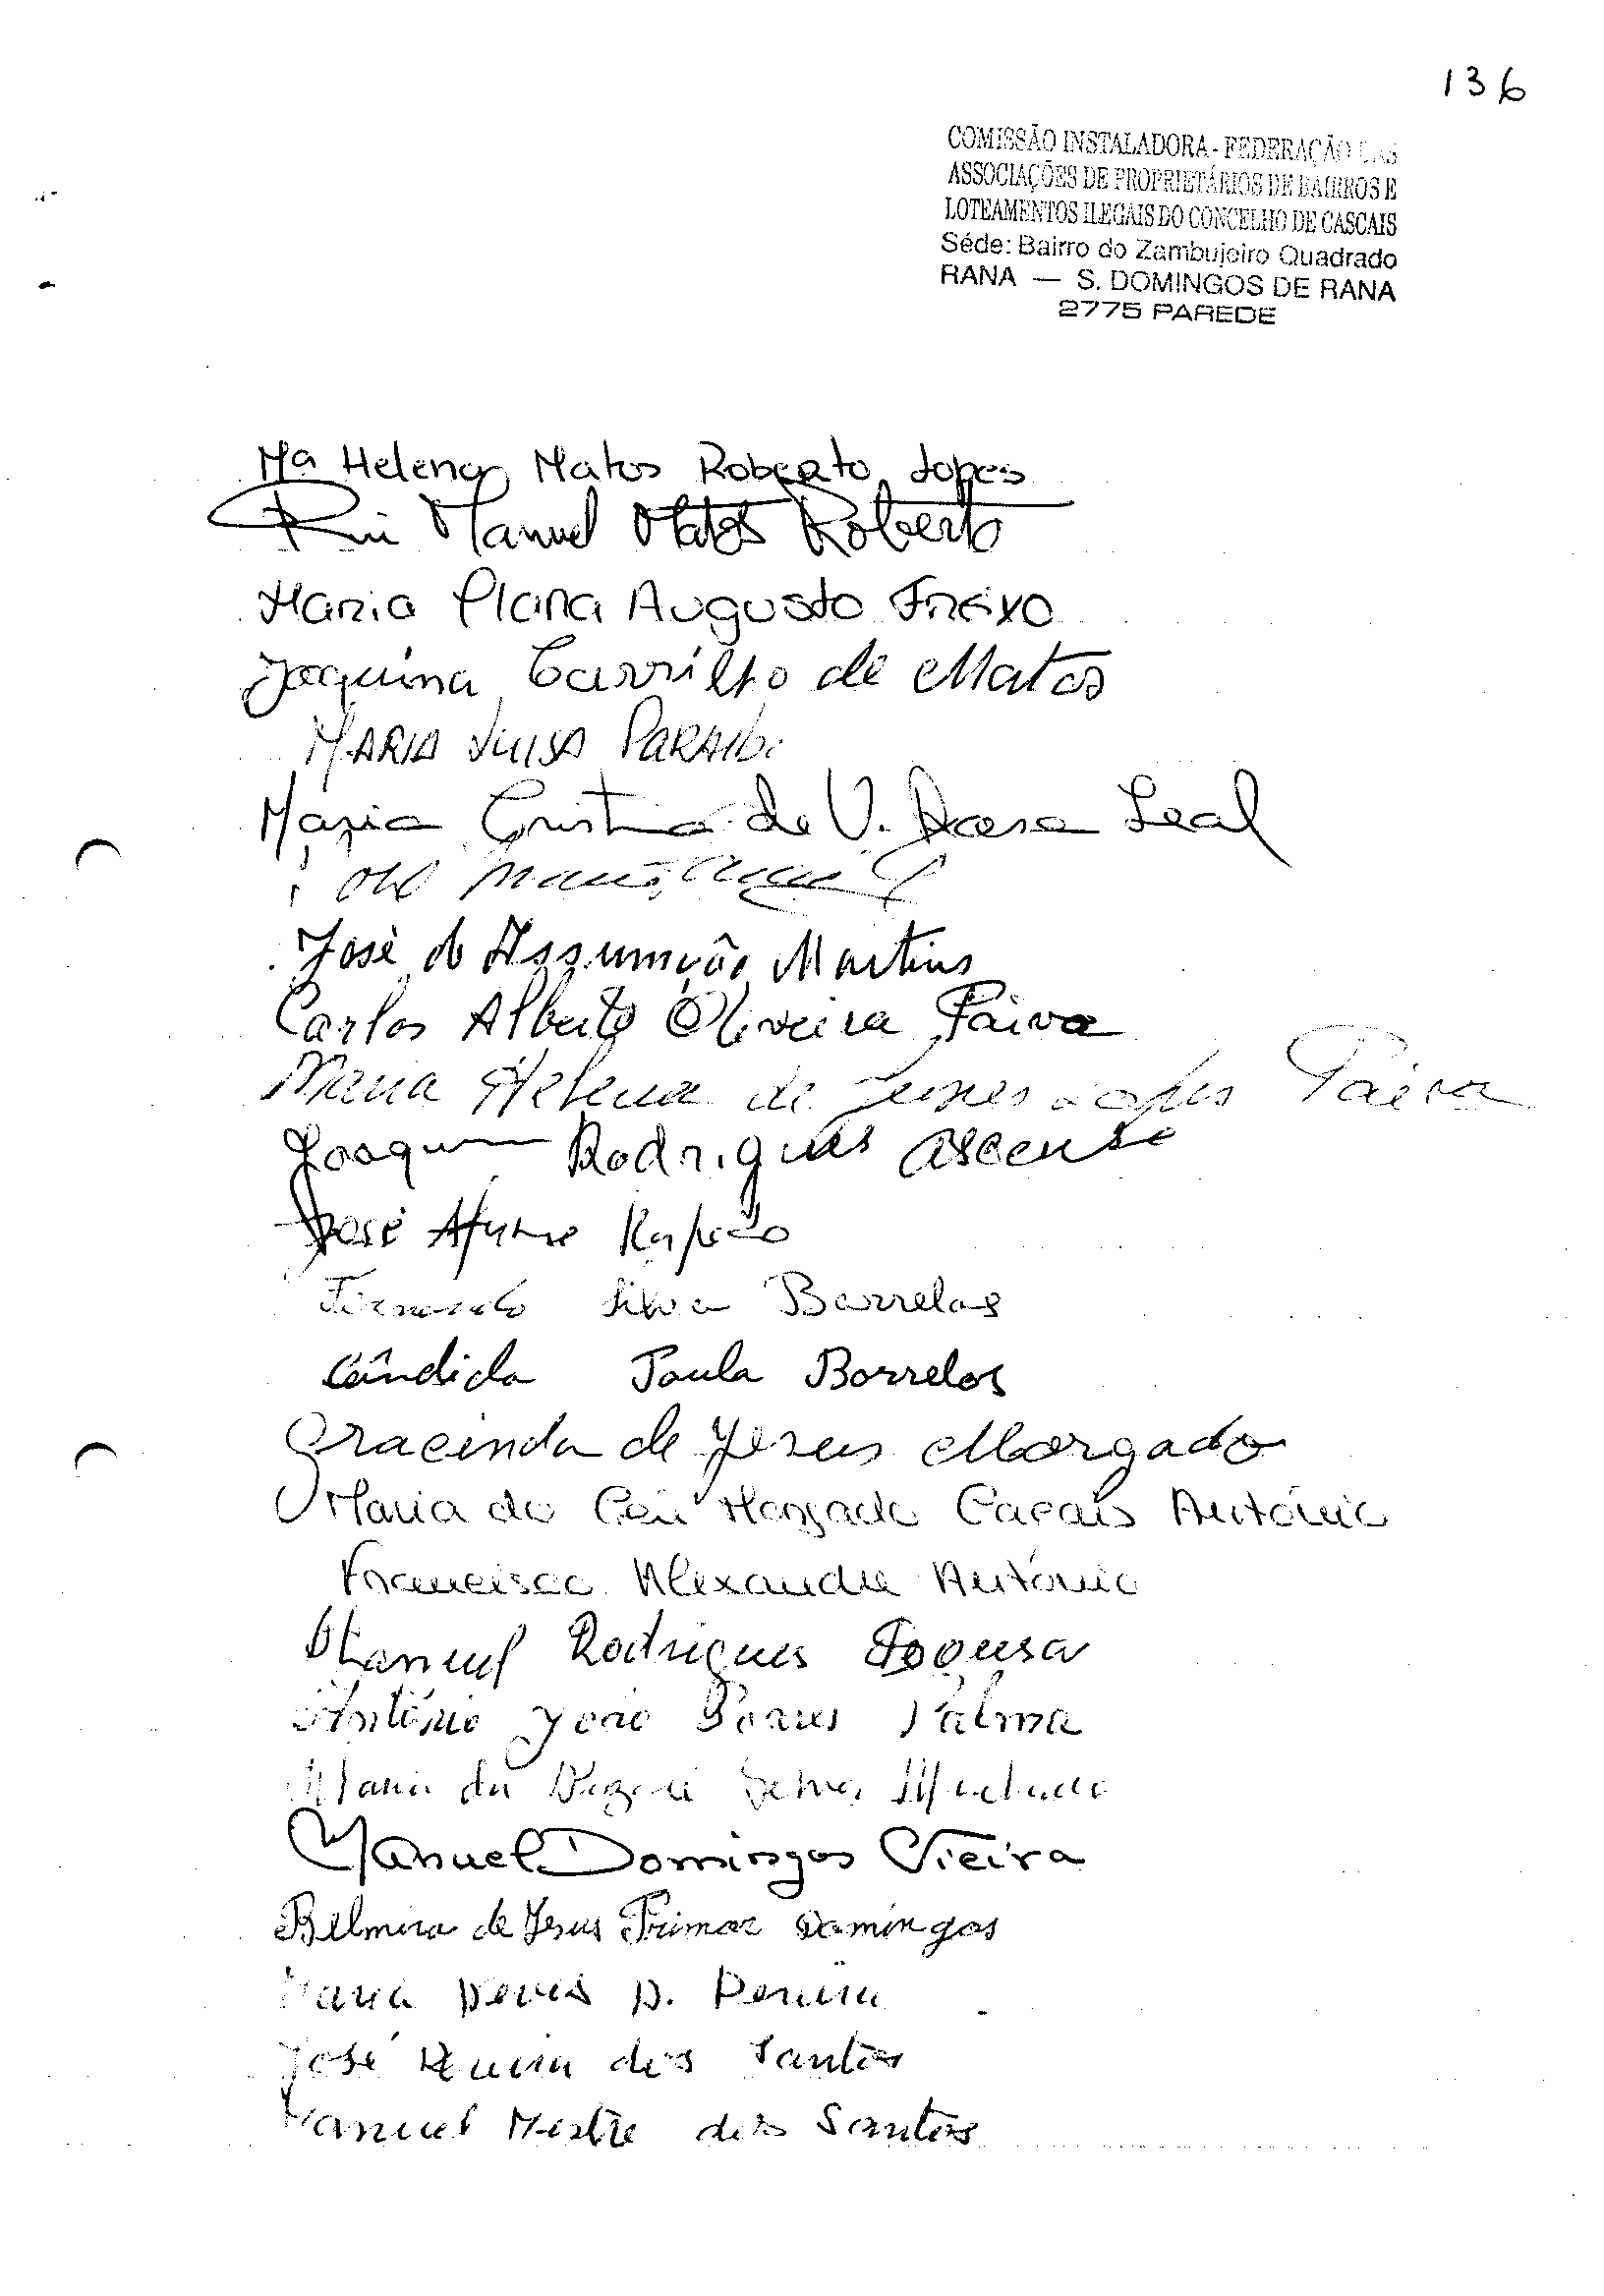 136
COMISSÃO INSTALADORA - FEDERAÇÃO DAS
ASSOCIAÇÕES DE PROPRIETÁRIOS DE BAIRROS E
LOTEAMENTOS ILEGAIS DO CONCELHO DE CASCAIS
Séde: Bairro do Zambujeiro Quadrado
RANA — S. DOMINGOS DE RANA
2775 PAREDE
Mª Helena Matos Roberto Lopes
Rui Manuel Matos Roberto
Maria Clara Augusto Freixo
Joaquina Carrilho de Matos
MARIA LUISA
Maria Cristina de V. Leal
José de Assumção Martins
Carlos Alberto Oliveira Paiva
Maria Helena de Lopes Paiva
Joaquim Rodrigues Ascenso
José
Fernando Silva Barrelas
Cândida Paula Borrelos
Gracinda de Jesus Morgado
Maria do Céu Morgado António
Francisco Alexandre António
Manuel Rodrigues
António João Palma
Maria da Silva
Manuel Domingos Vieira
Belmira de Jesus Domingos
Maria D.
José dos Santos
Manuel Mestre dos Santos